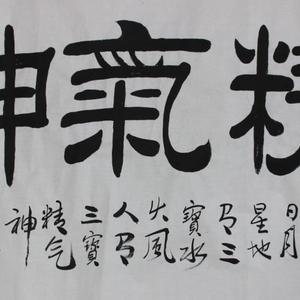 精氣神
日月
星地
有三
寶水
火風
人有
三寶
精气
神